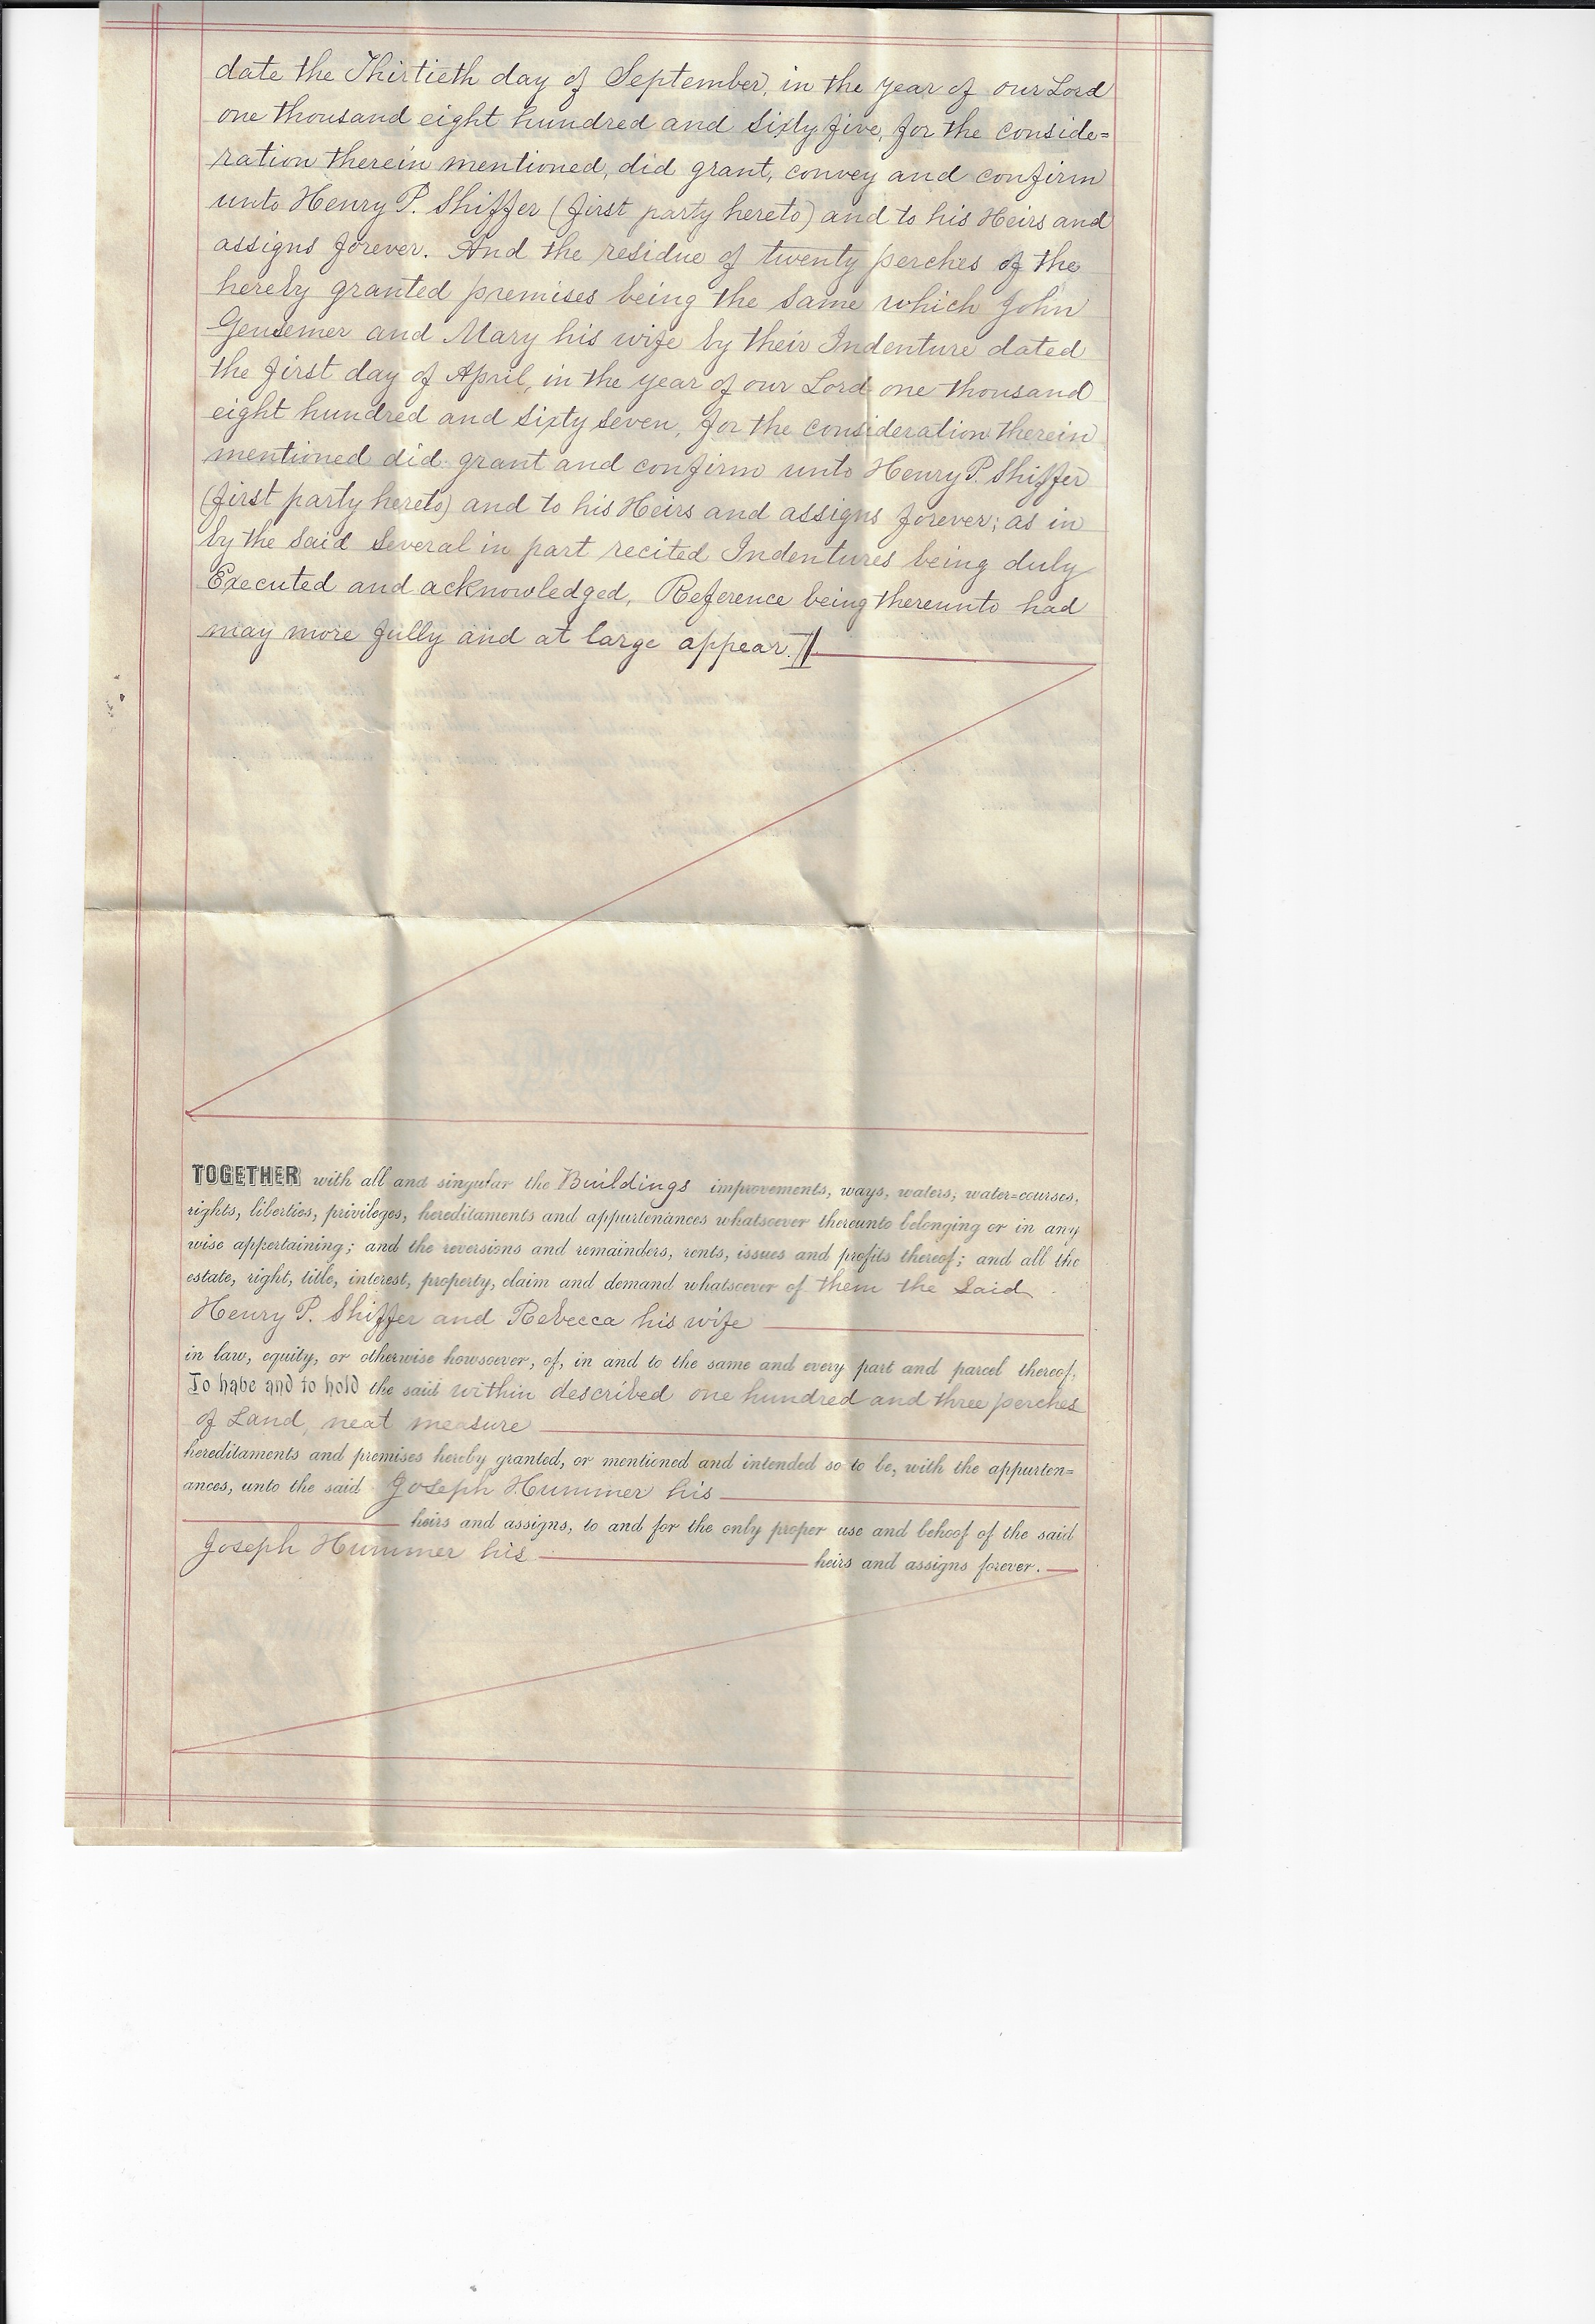 date the Thirtieth day of September, in the year of our Lord
one thousand eight hundred and Sixty five, for the conside=
ration therein mentioned, did grant, convey and confirm
unto Henry P. Shiffer (first party hereto) and to his Heirs and
assigns forever. And the residue of twenty perches of the
hereby granted premises being the same which John
Gensemer and Mary his wife by their Indenture dated
the first day of April, in the year of our Lord one thousand
eight hundred and Sixty Seven, for the consideration therein
mentioned did grant and confirm unto Henry P. Shiffer
(first party hereto) and to his Heirs and assigns forever; as in
by the Said Several in part recited Indentures being duly
Executed and acknowledged, Reference being thereunto had
may more fully and at large appear.
TOGETHER with all and singular the Buildings improvements, ways, waters, water=courses,
rights, liberties, privileges, hereditaments and appurtenances whatsoever thereunto belonging or in any
wise appertaining; and the reversions and remainders, rents, issues and profits thereof; and all the
estate, right, title, interest, property, claim and demand whatsoever of them the Said
Henry P. Shiffer and Rebecca his wife
in law, equity, or otherwise howsoever, of, in and to the same and every part and parcel thereof,
To have and to hold the said within described one hundred and three perches
of Land, neat measure
hereditaments and premises hereby granted, or mentioned and intended so to be, with the appurten=
ances, unto the said Joseph Hummer his
heirs and assigns, to and for the only proper use and behoof of the said
Joseph Hummer his heirs and assigns forever.